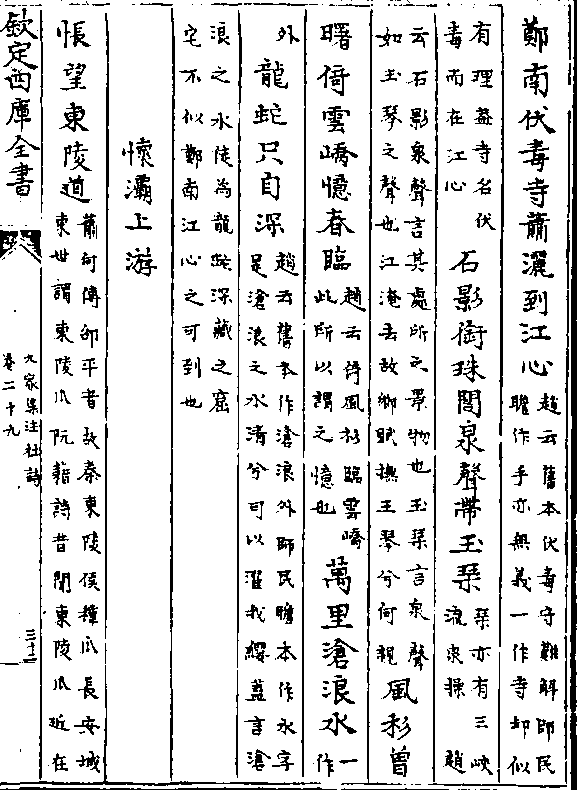 鄭南伏毒寺蕭灑到江心趙云舊本伏毒守難解師民
瞻作手亦無義一作寺却似
有理葢寺名伏
毒而在江心石影銜珠閣泉聲帶玉琴琴亦有三峽
流泉操趙
云石影泉聲言其處所之景物也玉琴言泉聲
如玉琴之聲也江淹去故鄉賦撫玉琴兮何親風杉曾
曙倚雲嶠憶春臨趙云倚風杉臨雲嶠
此所以謂之憶也萬里滄浪水一
作
外龍蛇只自深趙云舊本作滄浪外師民瞻本作水字
是滄浪之水清兮可以濯我纓葢言滄
浪之水徒為龍蛇深藏之窟
宅不似鄭南江心之可到也
懷灞上游
悵望東陵道蕭何傳邵平者故秦東陵侯種瓜長安城
東世謂東陵瓜阮籍詩昔聞東陵瓜近在
欽定四庫全書
九家集注杜詩
卷二十九
三十二